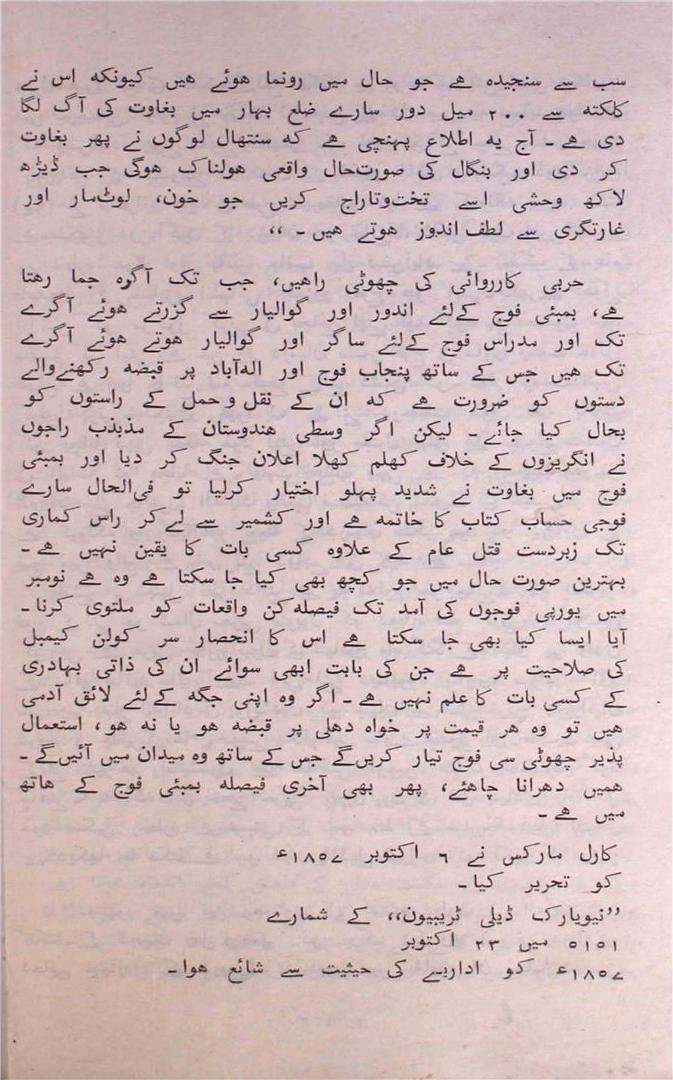 سب سے سنجیدہ ھے جو حال میں رونما ھوئے ھیں کیونکہ اس نے
کلکتہ سے ۲۰۰ میل دور سارے ضلع بہار میں بغاوت کی آگ لگا
دی ھے۔ آج یہ اطلاع پہنچی ھے کہ سنتھال لوگوں نے پھر بغاوت
کر دی اور بنگال کی صورت‌حال واقعی ھولناک ھوگی جب ڈیڑھ
لاکھ وحشی اسے تخت‌وتاراج کریں جو خون، لوٹ‌مار اور
غارتگری سے لطف‌اندوز ھوتے ھیں۔ ،،
حربی کارروائی کی چھوٹی راھیں، جب تک آگرہ جما رھتا
ھے، بمبئی فوج کےلئے اندور اور گوالیار سے گزرتے ھوئے آگرے
تک اور مدراس فوج کےلئے ساگر اور گوالیار ھوتے ھوئے آگرے
تک ھیں جس کے ساتھ پنجاب فوج اور الہ‌آباد پر قبضہ رکھنےوالے
دستوں کو ضرورت ھے کہ ان کے نقل و حمل کے راستوں کو
بحال کیا جائے۔ لیکن اگر وسطی ھندوستان کے مذبذب راجوں
نے انگریزوں کے خلاف کھلم کھلا اعلان جنگ کر دیا اور بمبئی
فوج میں بغاوت نے شدید پہلو اختیار کرلیا تو فی‌الحال سارے
فوجی حساب کتاب کا خاتمہ ھے اور کشمیر سے لےکر راس کماری
تک زبردست قتل عام کے علاوہ کسی بات کا یقین نہیں ھے۔
بہترین صورت حال میں جو کچھ بھی کیا جا سکتا ھے وہ ھے نومبر
میں یورپی فوجوں کی آمد تک فیصلہ‌کن واقعات کو ملتوی کرنا۔
آیا ایسا کیا بھی جا سکتا ھے اس کا انحصار سر کولن کیمبل
کی صلاحیت پر ھے جن کی بابت ابھی سوائے ان کی ذاتی بہادری
کے کسی بات کا علم نہیں ھے۔ اگر وہ اپنی جگہ کےلئے لائق آدمی
ھیں تو وہ ھر قیمت پر خواہ دھلی پر قبضہ ھو یا نہ ھو، استعمال
پذیر چھوٹی سی فوج تیار کریں‌گے جس کے ساتھ وہ میدان میں آئیں‌گے۔
ھمیں دھرانا چاھئے، پھر بھی آخری فیصلہ بمبئی فوج کے ھاتھ
میں ھے۔
کارل مارکس نے ۶ اکتوبر ۱۸۵۷ء
کو تحریر کیا۔
”نیویارک ڈیلی ٹریبیون،، کے شمارے
۵۱۵۱ میں ۲۳ اکتوبر
۱۸۵۷ء کو اداریے کی حیثیت سے شائع ھوا۔